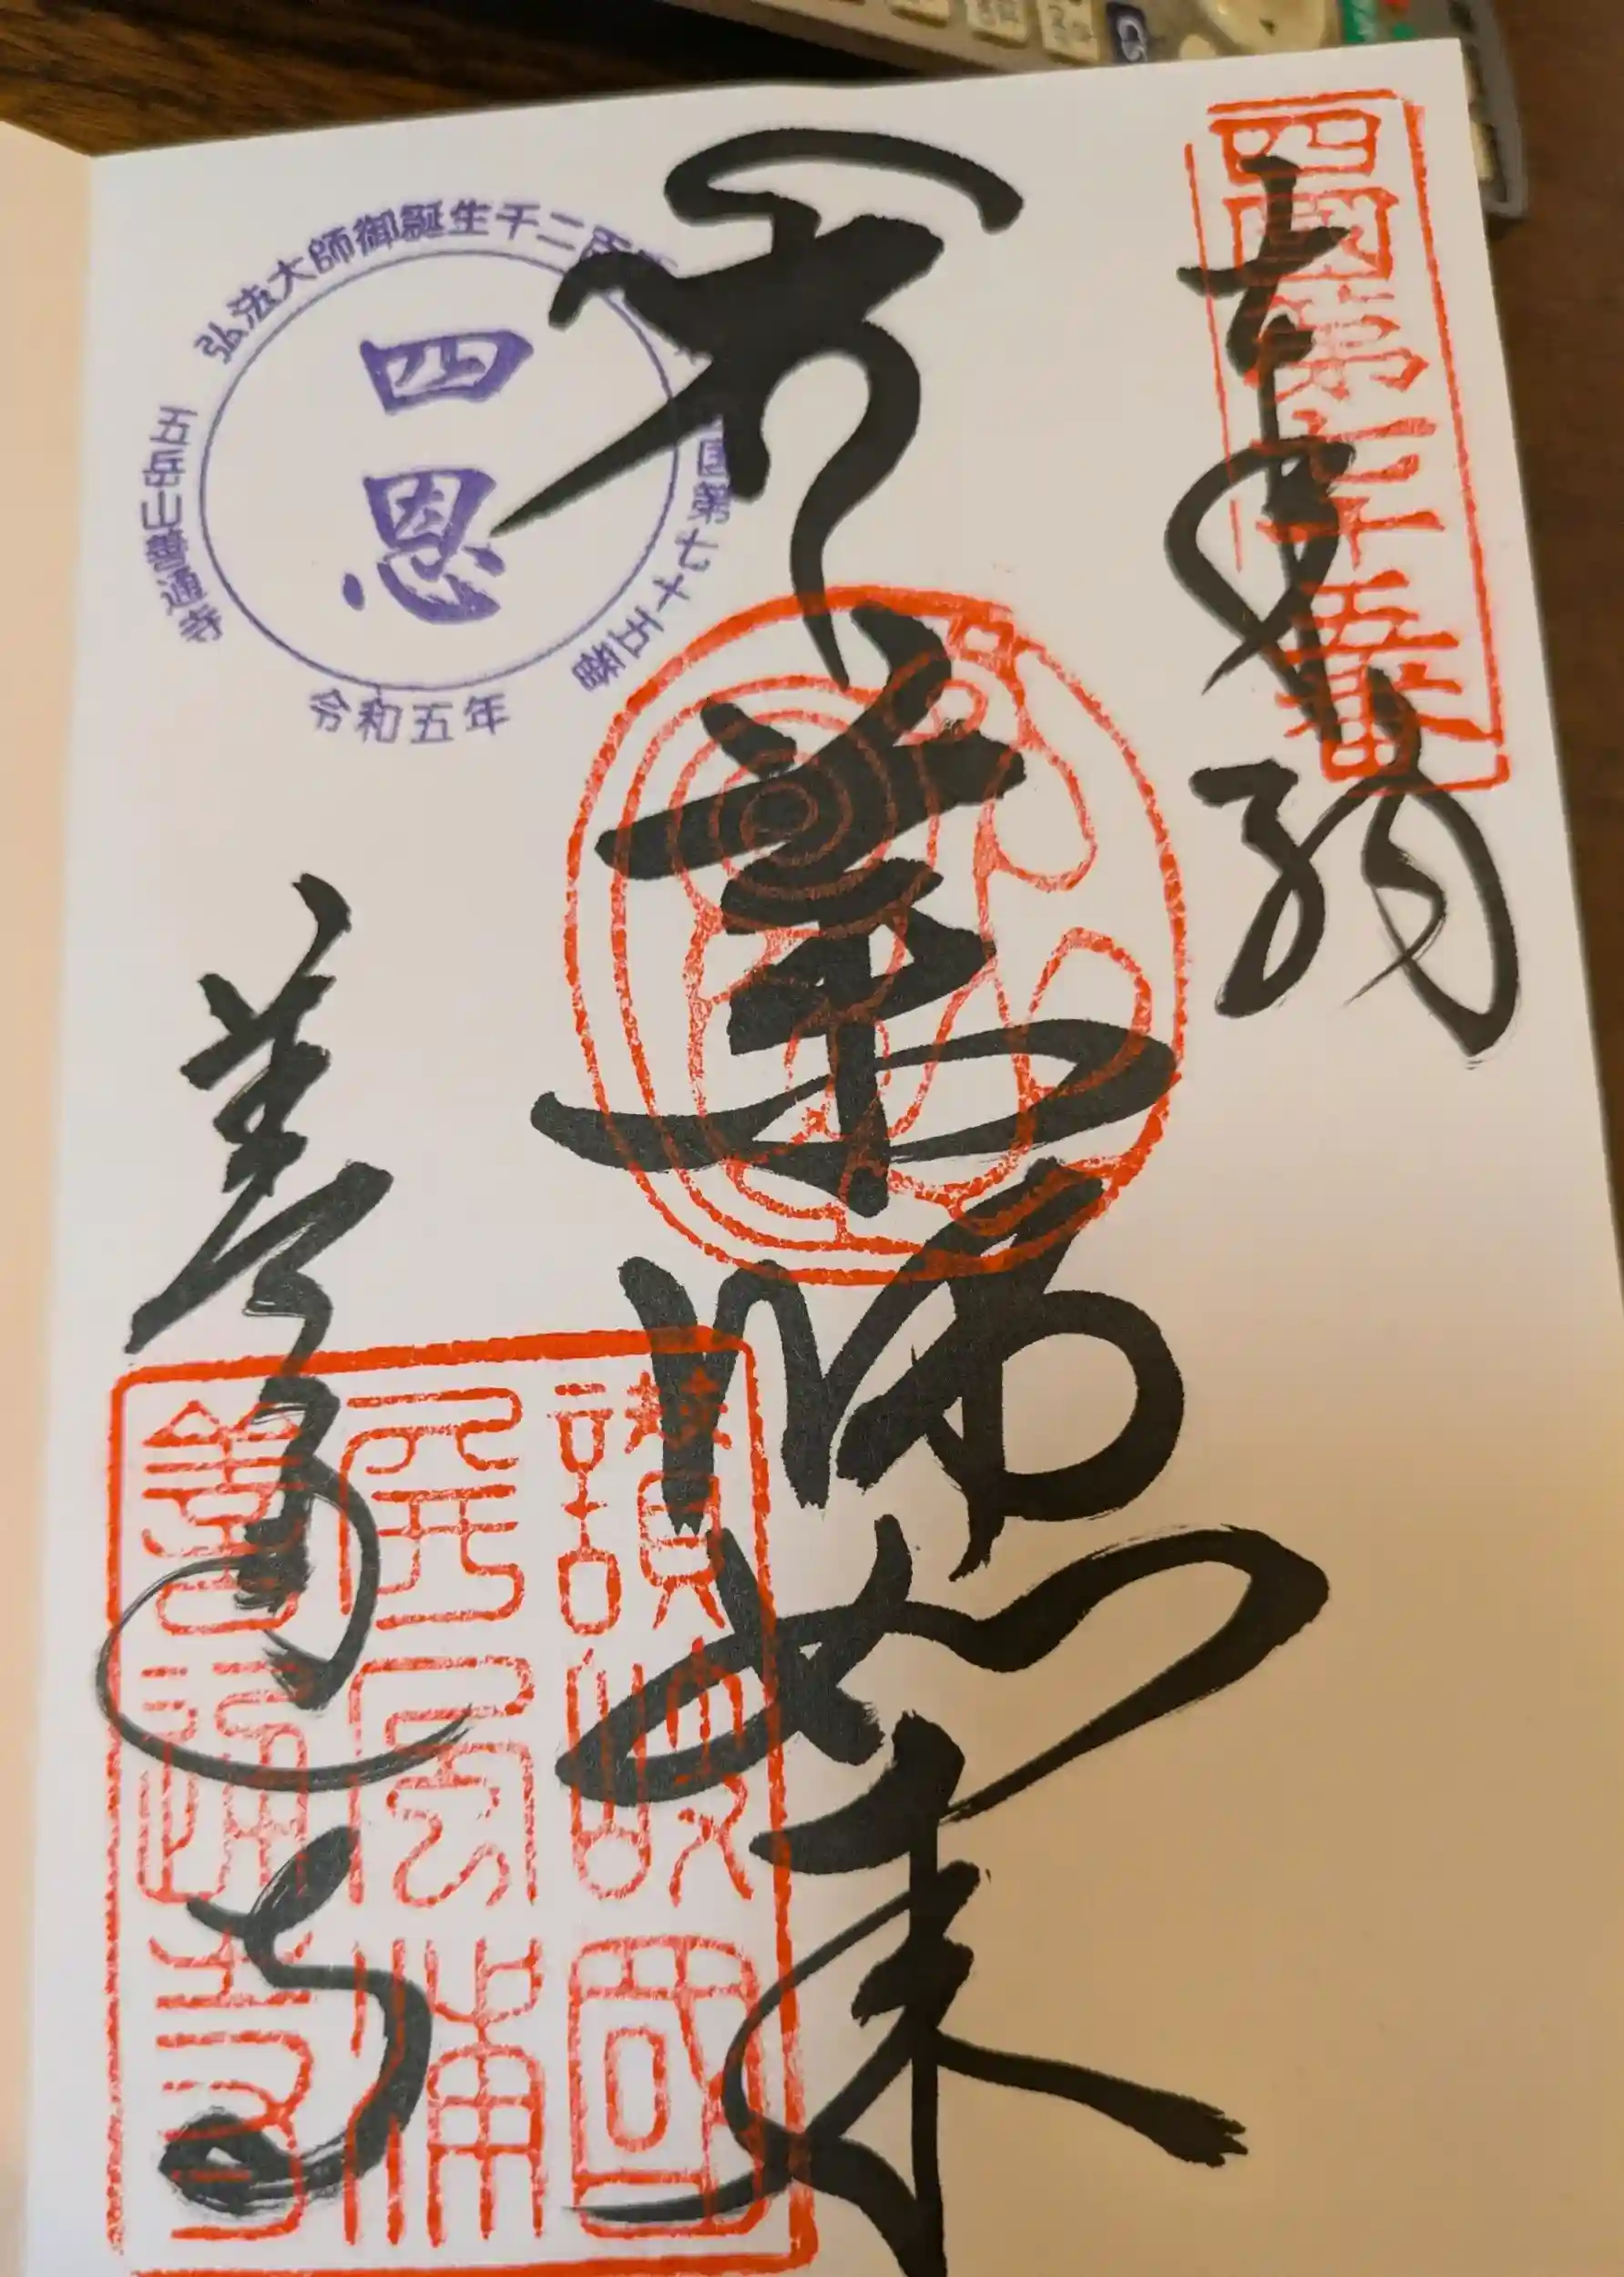 四國第七十五番
奉拝
薬師如来
善通寺
讃岐國
屏風浦
善通寺
弘法大師御誕生千二百
国第七十五番
五岳山善通寺
令和五年
四恩